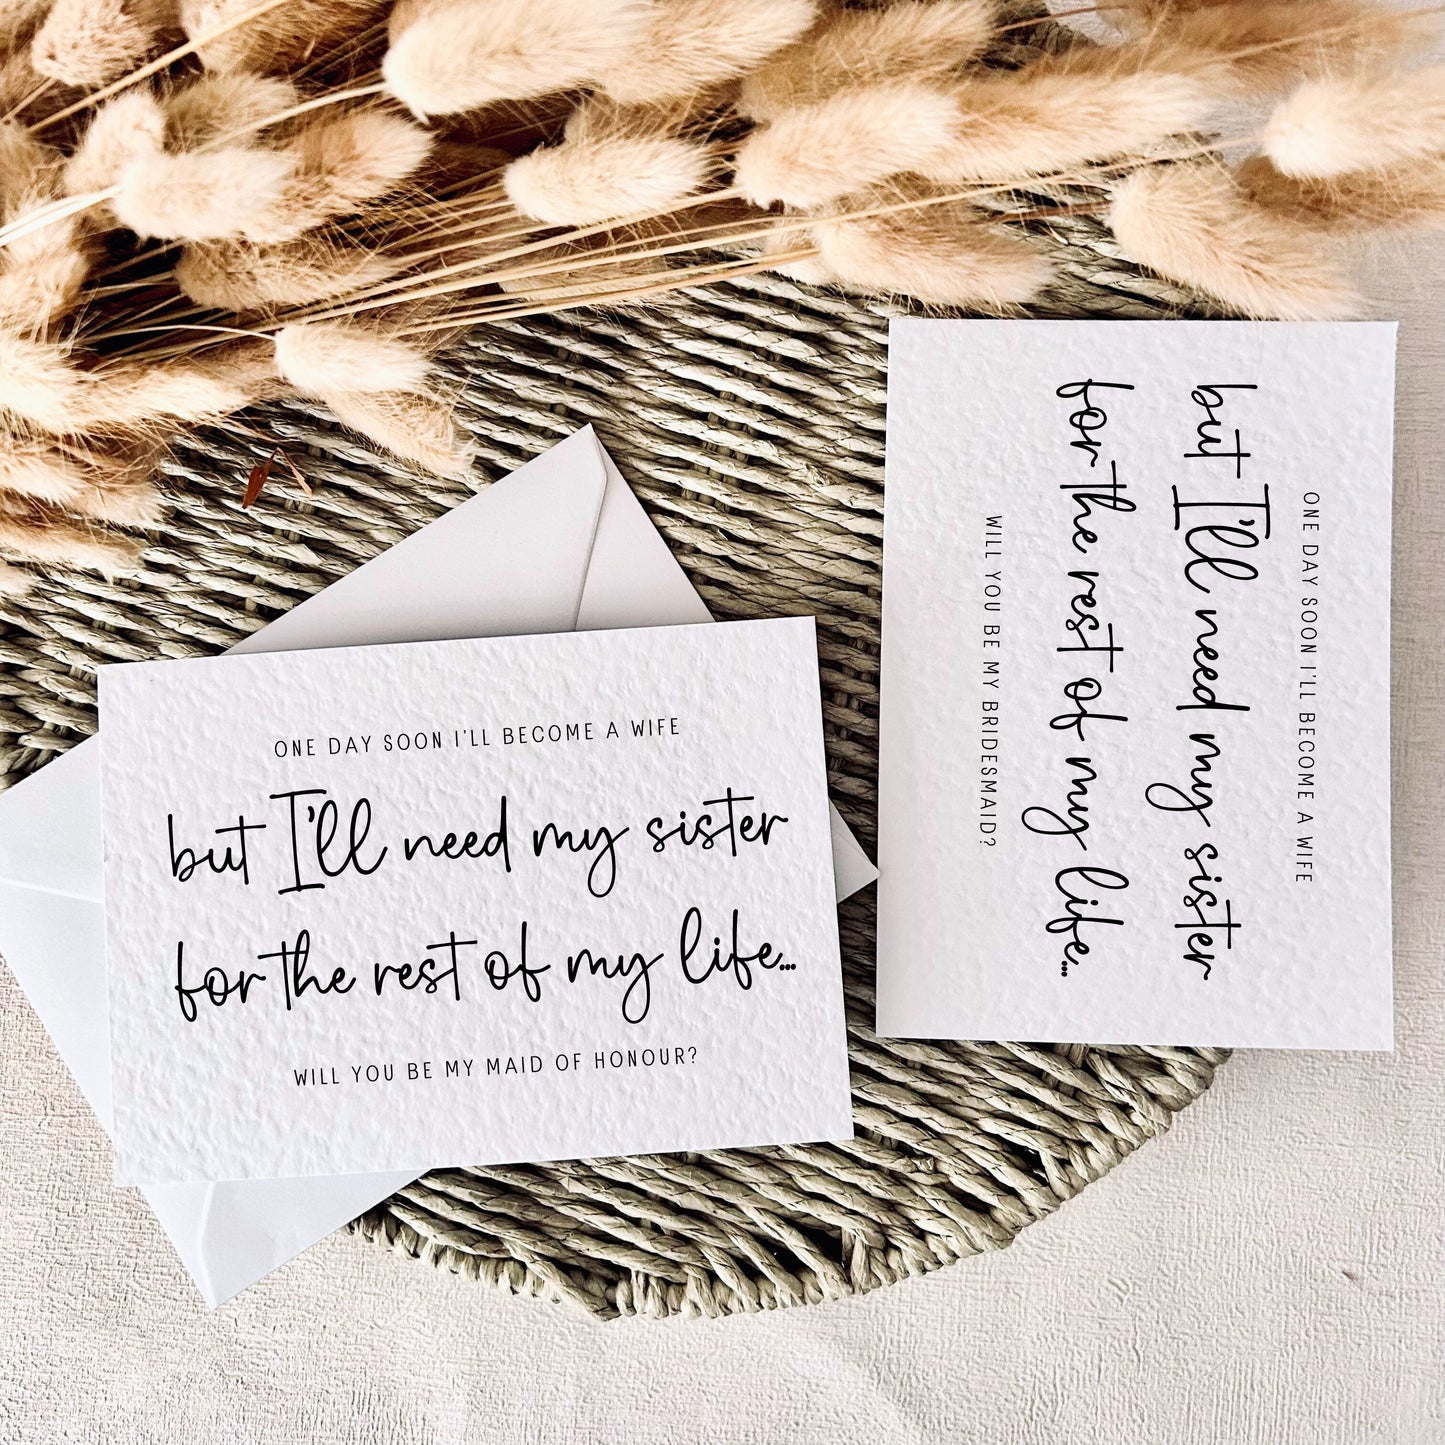 ONE DAY SOON I'LL BECOME A WIFE
but I'll need my sister
for the rest of my life...
WILL YOU BE MY MAID OF HONOUR?
ONE DAY SOON I'LL BECOME A WIFE
but I'll need my sister
for the rest of my life...
WILL YOU BE MY BRIDESMAID?